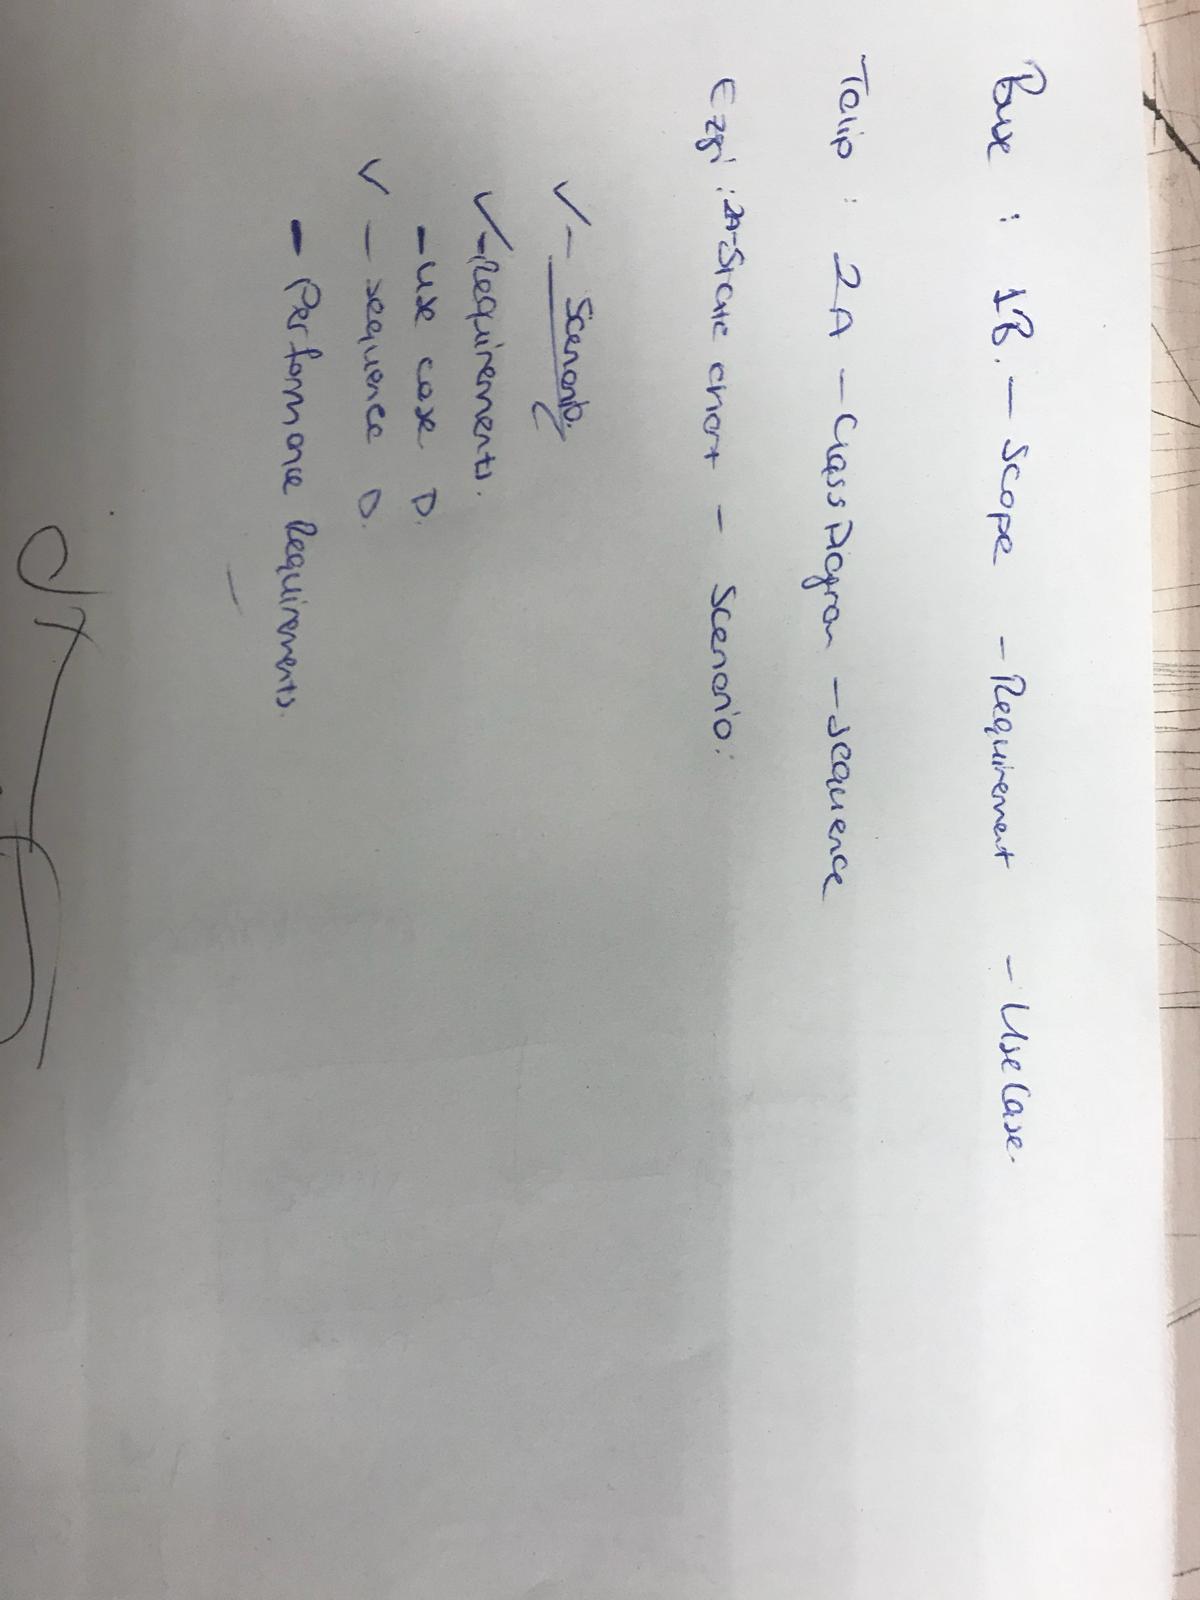 Buse : 1B. — Scope - Requirement - UseCase.
Talip : 2A - Class Diagram - sequence
Ezgi : 2A-State chart - Scenario.
✓ - Scenario.
✓ -Requirements.
- use case D.
✓ - sequence D.
- Performance Requirements.